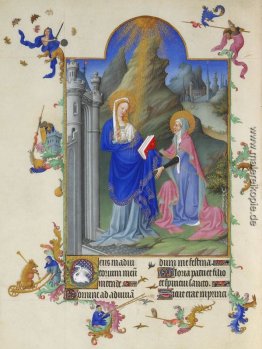 Deus in adiu
torium meum
intende
Domine ad adiuua
dum me festina.
Gloria patri et filio
et spiritui sancto.
Sicut erat in princi
www.malereikopie.de